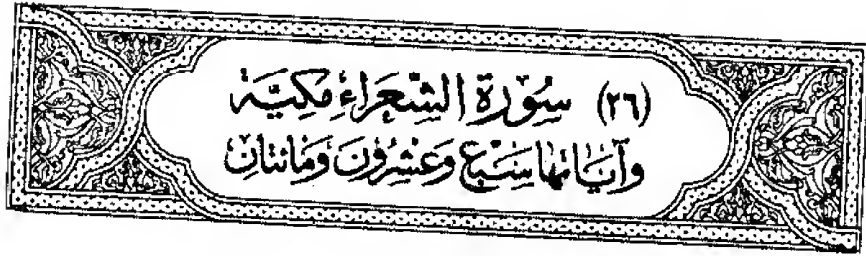 (٢٦) سُورَةُ الشُّعَرَاءِ مَكِيَّة
وَآيَاتُهَا سَبْعٌ وَعِشْرُونَ وَمَائتَانِ